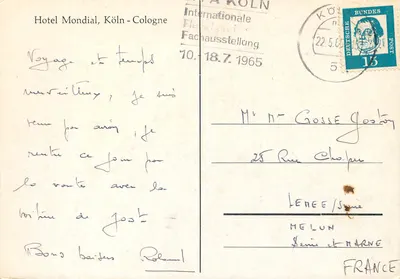 Hotel Mondial, Köln - Cologne
Voyage et temps
merveilleux, je suis
venu par avion, je
rentre ce jour par
la route avec la
voiture de Gost-
Bons baisers Roland
KÖLN
Internationale
Fachausstellung
10.-18.7.1965
KÖ
22.5.6
5
DEUTSCHE BUNDESPOST
15
Mr Mme COSSE Gaston
25 Rue Chopin
MELUN
Seine et MARNE
FRANCE